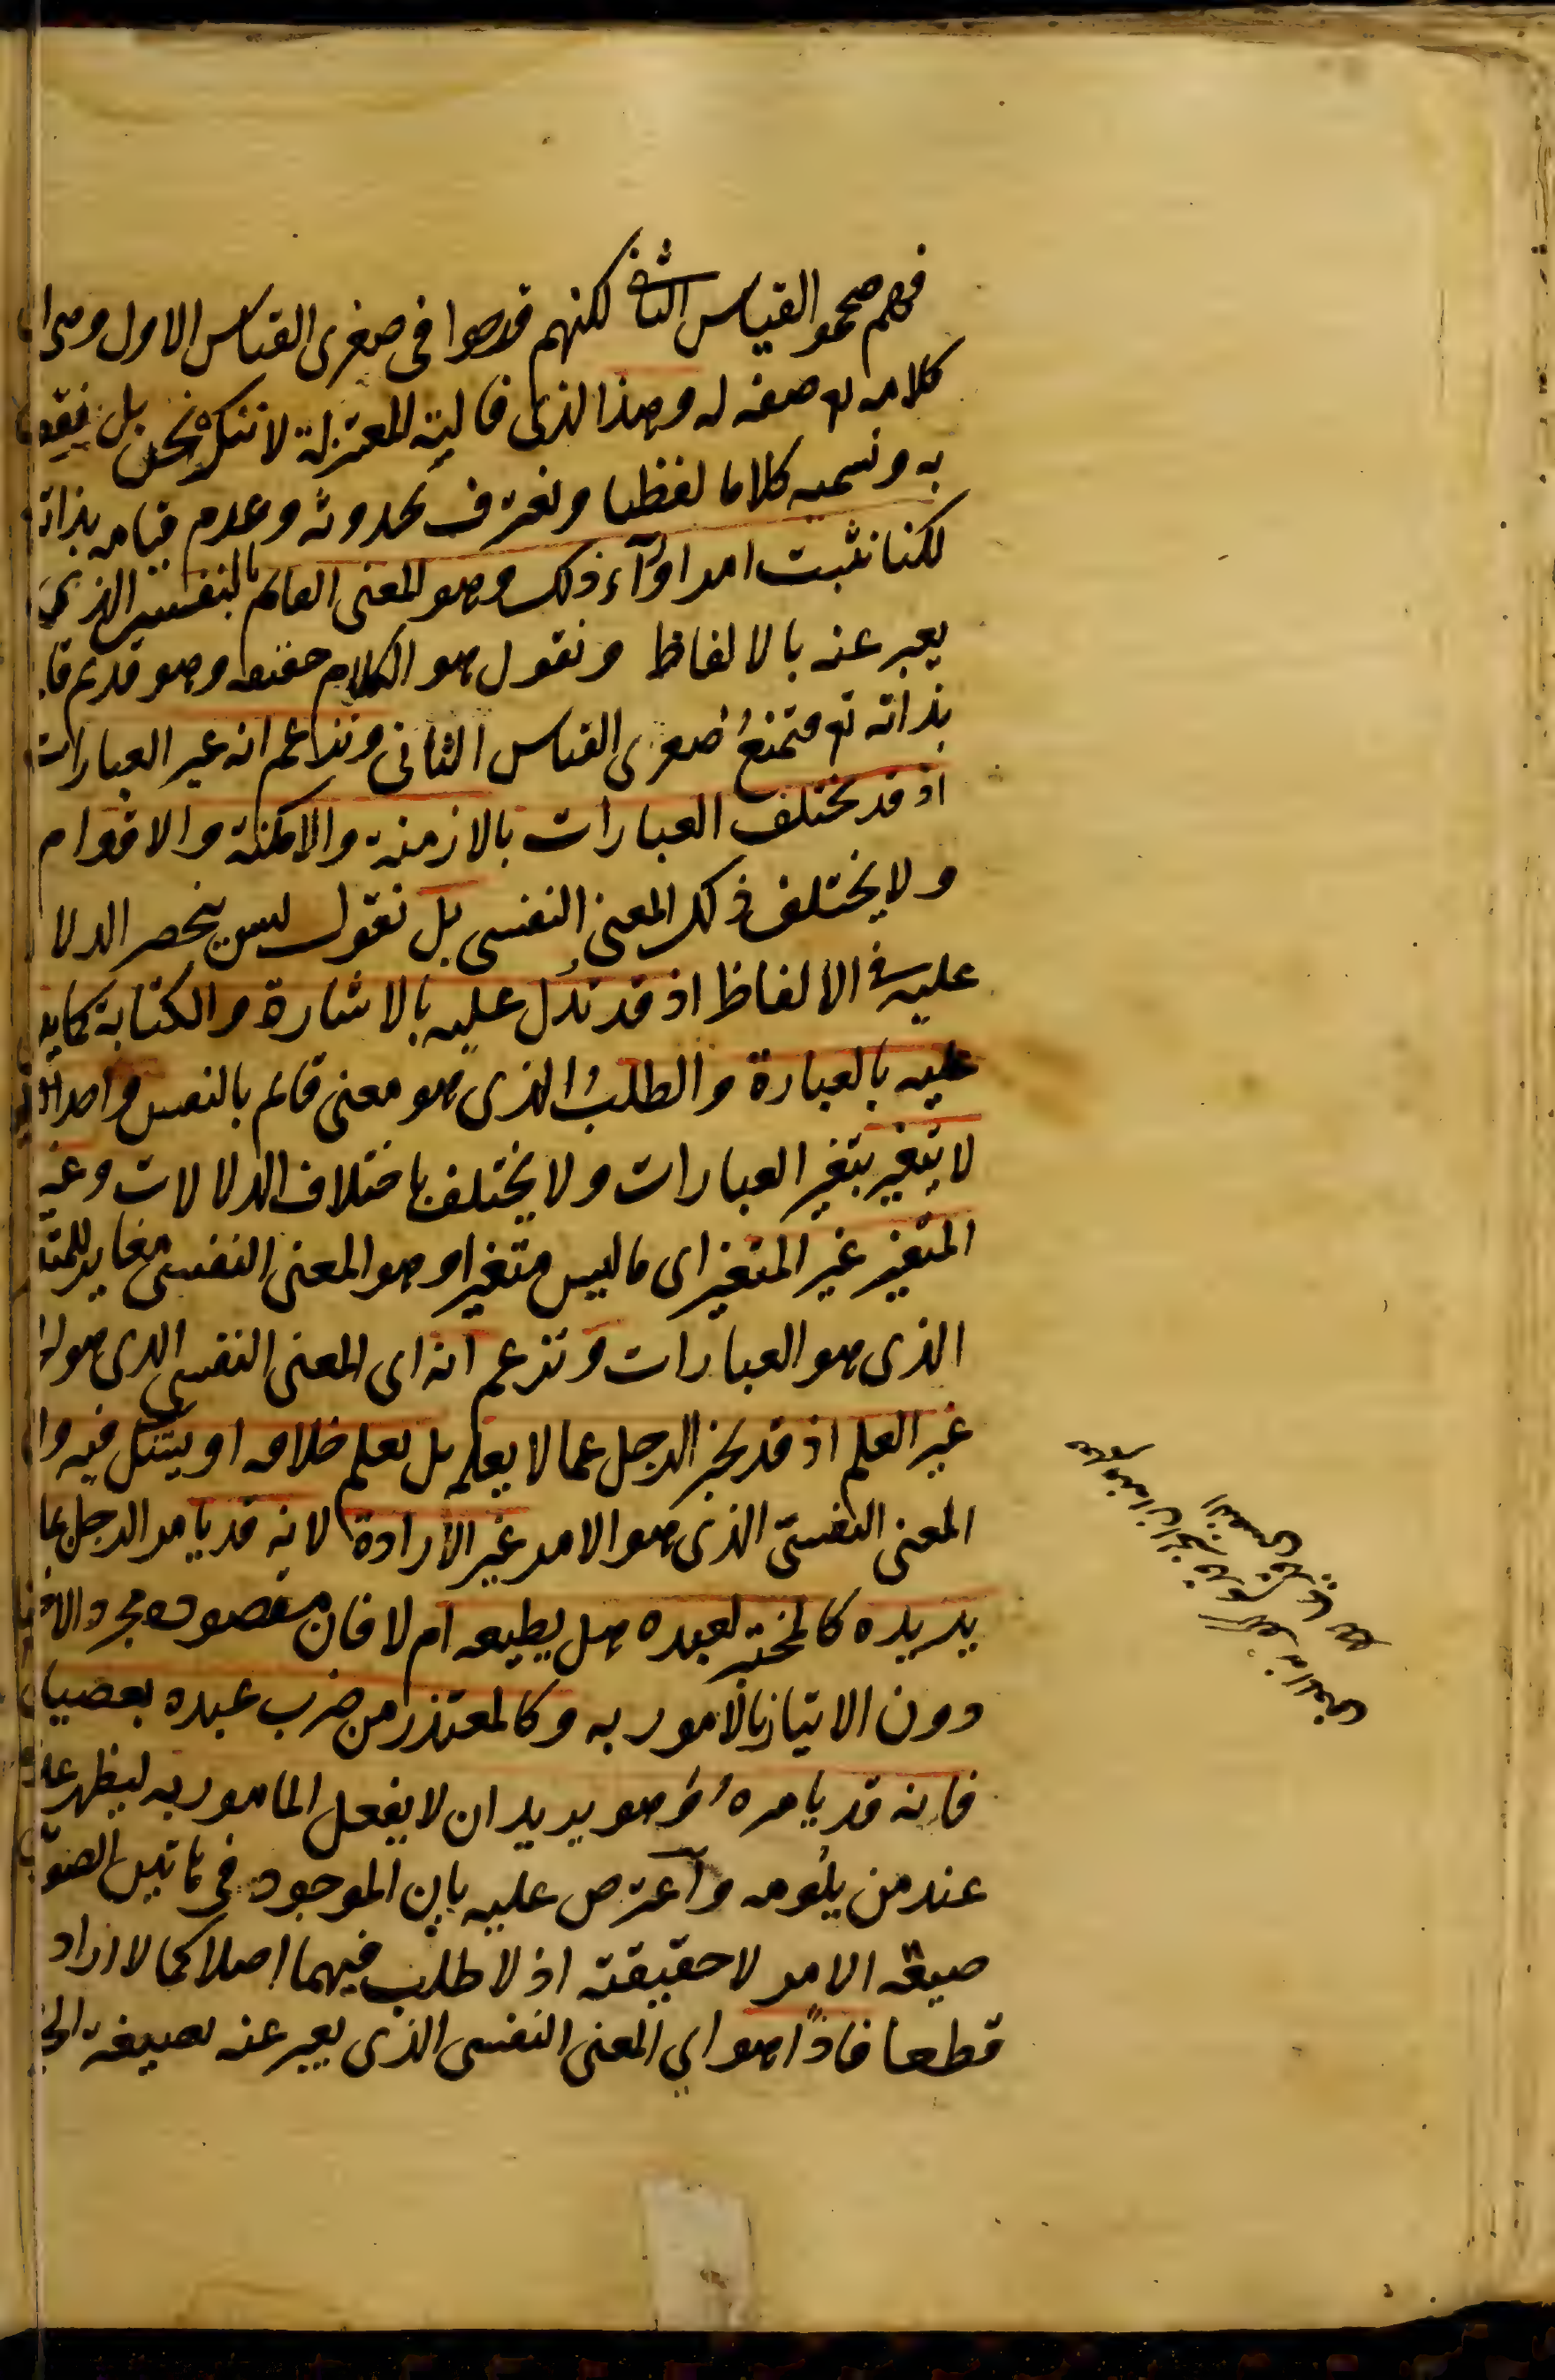 فهم صححوا القياس الثانى لكنهم قدحوا فى صغرى القياس الاول وهى ان
كلامه تع صفة له وهذا الذى قالته المعتزلة لا ننكره نحن بل نقول
به ونسميه كلاما لفظيا ونعترف بحدوثه وعدم قيامه بذاته
لكنا نثبت امرا وراء ذلك وهو المعنى القائم بالنفس الذى
يعبر عنه بالالفاظ ونقول هو الكلام حقيقة وهو قديم قا
بذاته تع فتمنع صغرى القياس الثانى ونزعم انه غير العبارات
اذ قد تختلف العبارات بالازمنة والامكنة والاقوام
ولا يختلف ذلك المعنى النفسى بل نقول ليس ينحصر الدلا
عليه فى الالفاظ اذ قد تدل عليه بالاشارة والكتابة كما يد
عليه بالعبارة والطلب الذى هو معنى قائم بالنفس واحد
لا يتغير بتغير العبارات ولا يختلف باختلاف الدلالات وغير
المتغير غير المتغير اى ما ليس متغيرا وهو المعنى النفسى مغاير للمتغ
الذى هو العبارات ونزعم انه اى المعنى النفسى الذى هو الـ
غير العلم اذ قد يخبر الرجل عما لا يعلم بل يعلم خلافه او يشك فيه وا
المعنى النفسى الذى هو الامر غير الارادة لانه قد يامر الرجل بما
يريده كالمختبر لعبده هل يطيعه ام لا فان مقصوده مجرد الاخ
دون الاتيان بالمامور به وكالمعتذر من ضرب عبده بعصيا
فانه قد يامره وهو يريد ان لا يفعل المامور به ليظهر عذ
عند من يلومه واعترض عليه بان الموجود فى هاتين الصو
صيغة الامر لا حقيقته اذ لا طلب فيهما اصلا كما لا اراد
قطعا فاذا هو اى المعنى النفسى الذى يعبر عنه بصيغة الخ